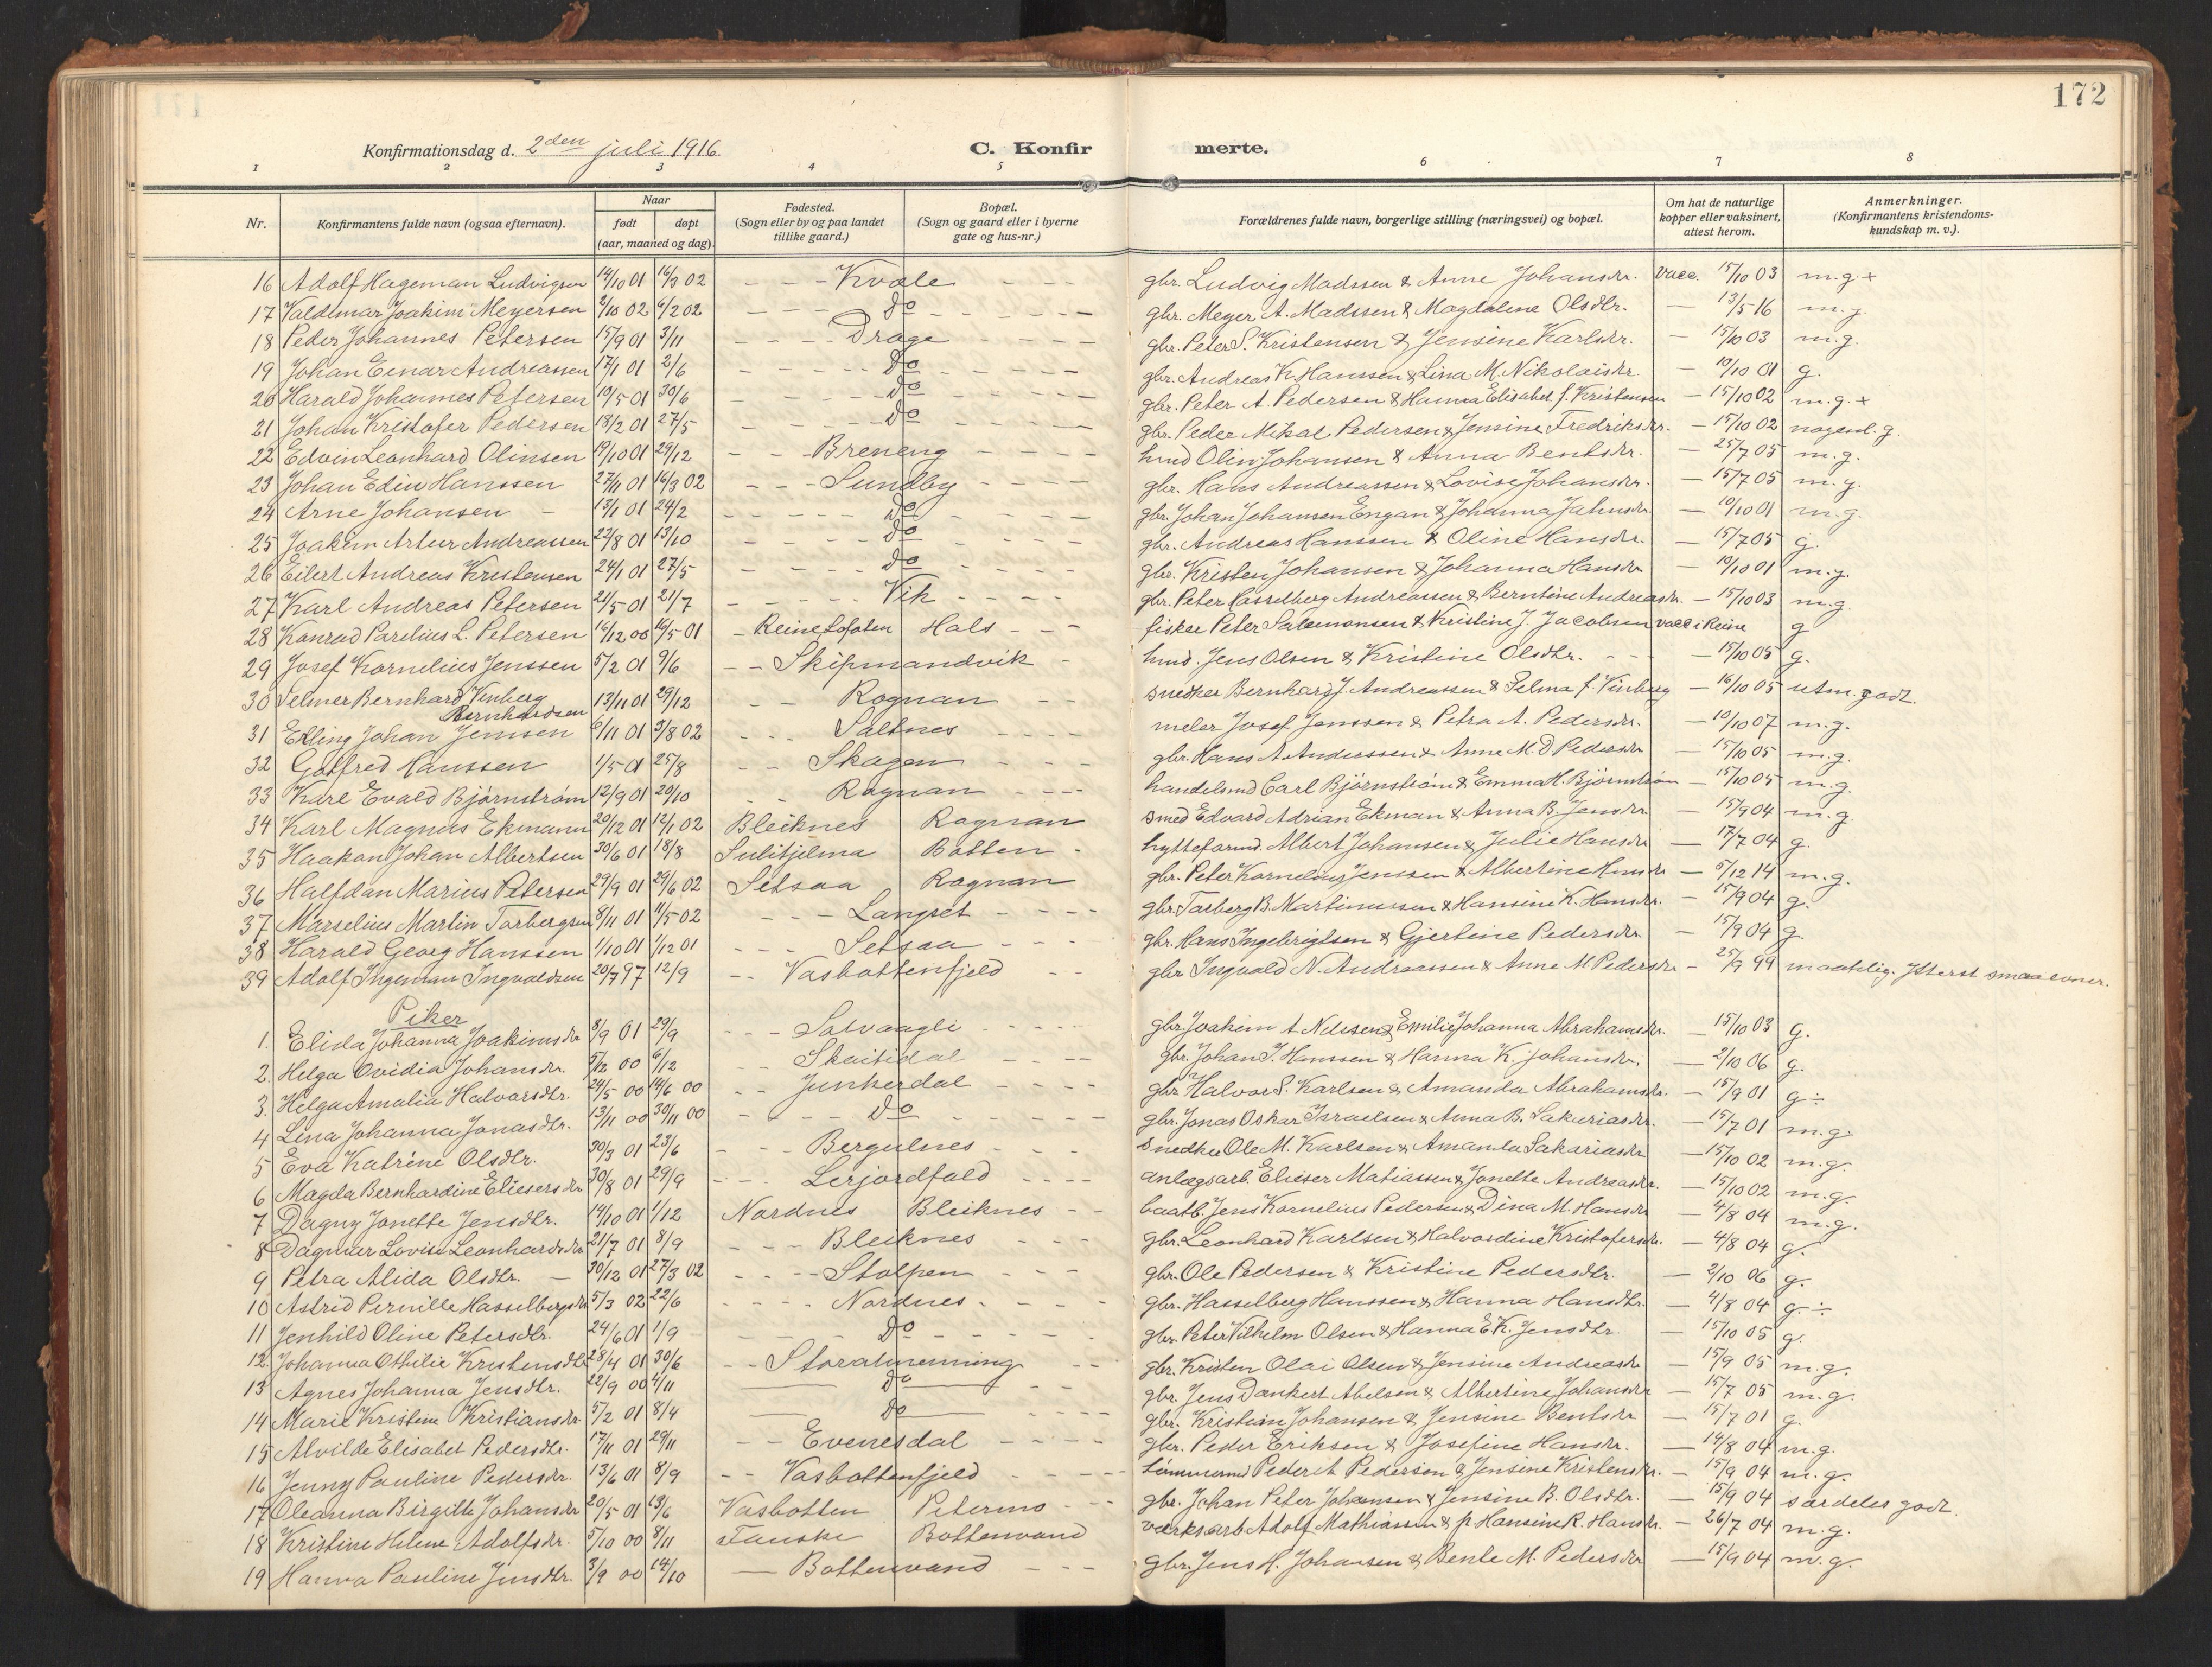 172
Konfirmationsdag d. 2den juli 1916.
C. Konfirmerte.
1 2 3 4 5 6 7 8
Nr. | Konfirmantens fulde navn (ogsaa efternavn). | Naar født døpt (aar, maaned og dag). | Fødested. (Sogn eller by og paa landet tillike gaard.) | Bopæl. (Sogn og gaard eller i byerne gate og hus-nr.) | Forældrenes fulde navn, borgerlige stilling (næringsvei) og bopæl. | Om hat de naturlige kopper eller vaksinert, attest herom. | Anmerkninger. (Konfirmantens kristendoms-kundskap m. v.).
16 Adolf Hageman Ludvigsen 14/10 01 16/3 02 - - - Kvæle - - - gbr. Ludvig Madssen & Anne Johansdr. Vacc. 15/10 03 m.g.+
17 Valdemar Joakim Meyersen 2/10 02 6/2 02 - - - Do - - - gbr. Meyer A. Madssen & Magdalene Olsdtr. — 13/5 16 m.g.
18 Peder Johannes Petersen 15/9 01 3/11 - - - Drage - - - gbr. Peter S. Kristensen & Jensine Karlsdr. — 15/10 03 m.g.
19 Johan Einar Andreassen 17/1 01 2/6 - - - Do - - - gbr. Andreas K. Hanssen & Lina M. Nikolaisdr. — 10/10 01 g.
20 Harald Johannes Petersen 19/5 01 30/6 - - - Do - - - gbr. Peter A. Pedersen & Hanna Elisabet f. Kristensen — 15/10 02 m.g.+
21 Johan Kristofer Pedersen 18/2 01 27/5 - - - Do - - - gbr. Peder Mikal Pedersen & Jensine Fredriksdr. — 15/10 02 nogenl. g.
22 Edvin Leonhard Olinsen 19/10 01 29/12 - - - Breneng - - - hmd Olin Johansen & Anna Bentsdr. — 25/7 05 m.g.
23 Johan Edin Hanssen 27/11 01 16/3 02 - - - Sundby - - - gbr. Hans Andreassen & Lovise Johansdr. — 15/7 05 m.g.
24 Arne Johansen - 13/1 01 24/2 - - - Do - - - gbr. Johan Johansen Engan & Johanna Jahnsdr. — 10/10 01 m.g.
25 Joakim Artur Andreassen 22/8 01 13/10 - - - Do - - - gbr. Andreas Hanssen & Oline Hansdr. — 15/7 05 g.
26 Eilert Andreas Kristensen 24/1 01 27/5 - - - Do - - - gbr. Kristen Johansen & Johanna Hansdr — 10/10 01 m.g.
27 Karl Andreas Petersen 21/5 01 21/7 - - - Vik - - - gbr. Peter Hasselberg Andreassen & Berntine Andreasdr. — 15/10 03 m.g.
28 Konrad Parelius L. Petersen 16/12 00 16/5 01 - Reine Lofoten Hals - - fisker Peter Salomonsen & Kristine J. Jacobsen vacc i Reine g
29 Josef Kornelius Jenssen 5/2 01 9/6 - - Skipmandvik - hmd. Jens Olsen & Kristine Olsdtr. - - - 15/10 05 g.
30 Selmer Bernhard Vinberg Bernhardsen 13/11 01 29/12 - - Rognan - - snedker Bernhard J. Andreassen & Selma f. Vinberg — 16/10 05 utm. godt.
31 Erling Johan Jenssen 6/11 01 3/8 02 - - - Saltnes - - - meler Josef Jenssen & Petra A. Pedersdr. — 10/10 07 m.g.
32 Gotfred Hanssen 1/5 01 25/8 - - Skagen - - - gbr. Hans A. Anderssen & Anne M. D Pedersdr — 15/10 05 m.g.
33 Karl Evald Bjørnstrøm 12/9 01 20/10 - - Rognan - - - handelsmd Carl Bjørnstrøm & Emma H. Bjørnstrøm — 15/10 05 m.g.
34 Karl Magnus Ekmann 20/12 01 12/1 02 Bleiknes Rognan smed Edvard Adrian Ekman & Anna B. Jensdr — 15/9 04 m.g.
35 Haakon Johan Albertsen 30/6 01 18/8 Sulitjelma Botten - hytteformd. Albert Johansen & Julie Hansdr — 17/7 04 g.
36 Halfdan Marius Petersen 29/9 01 29/6 02 Setsaa Rognan gbr. Peter Kornelius Jenssen & Albertine Hansdr — 5/12 14 m.g.
37 Marselius Martin Torbergsen 8/11 01 11/5 02 - - - Langset - - - gbr. Torberg B. Martinussen & Hansine K. Hansdr. — 15/9 04 g.
38 Harald Georg Hanssen 1/10 01 1/12 01 - - - Setsaa - - - gbr. Hans Ingebrigtsen & Gjertine Pedersdr — 15/9 04 g.
39 Adolf Ingeman Ingvaldsen 20/7 97 12/9 - - Vasbottenfjeld - - gbr Ingvald N. Andreassen & Anne M. Pedersdr - 25/9 99 maatelig. Ytterst smaa evner.
Piker
1. Elida Johanna Joakimsdr 8/9 01 29/9 - - - Solvaagli - - - gbr. Joakim A Nilssen & Emilie Johanna Abrahamsdr. — 15/10 03 g.
2. Helga Ovidia Johansdr. 5/12 00 6/12 - - Skaitidal - - - gbr. Johan J. Hanssen & Hanna K. Johansdr. — 2/10 06 g.
3. Helga Amalia Halvorsdtr. 24/5 00 14/6 00 - - Junkerdal - - - gbr Halvor S. Karlsen & Amanda Abrahamsdr. — 15/9 01 g÷
4 Lina Johanna Jonasdtr. 13/11 00 30/11 00 - - - Do - - - gbr. Jonas Oskar Israelsen & Anna B. Sakariasdr. — 15/7 01 m.g.
5 Eva Katrine Olsdtr. 30/3 01 23/6 - - - Bergulnes - - - snedker Ole M. Karlsen & Amanda Sakariasdr — 15/10 02 m.g.
6 Magda Bernhardine Eliesersdr 30/8 01 29/9 - - - Lerjordfald - - - anlægsarb. Elieser Matiassen & Jonette Andreasdr. — 15/10 02 m.g.
7 Dagny Jonette Jensdtr. 14/10 01 1/12 Nordnes Bleiknes - - baatb. Jens Kornelius Pedersen & Dina M. Hansdr — 4/8 04 m.g.
8 Dagmar Lovise Leonhardsdr 21/7 01 8/9 - - - Bleiknes - - - gbr. Leonhard Karlsen & Halvordine Kristofersdr. — 4/8 04 g.
9 Petra Alida Olsdtr. — 30/12 01 27/3 02 - - - Stolpen - - - gbr. Ole Pedersen & Kristine Pedersdtr. — 2/10 06 g.
10 Astrid Pernille Hasselbergsdr 5/3 02 22/6 - - - Nordnes - - - gbr. Hasselberg Hanssen & Hanna Hansdtr. — 4/8 04 g.÷
11 Jenhild Oline Petersdtr. 24/6 01 1/9 - - - Do - - - gbr. Peter Vilhelm Olsen & Hanna E.K. Jensdtr. — 15/10 05 g.
12. Johanna Othilie Kristensdtr 28/4 01 30/6 - - Storalmenning - - gbr. Kristen Olai Olsen & Jensine Andreasdr — 15/9 05 m.g.
13 Agnes Johanna Jensdtr. 22/9 00 4/11 — Do — - - gbr. Jens Dankert Abelsen & Albertine Johansdr — 15/7 05 m.g.
14 Marie Kristine Kristiansdr 5/2 01 8/4 — Do — - - gbr. Kristian Johansen & Jensine Bentsdr — 15/7 01 g.
15 Alvilde Elisabet Pedersdtr. 17/11 01 29/11 - - Evenesdal - - - gbr. Peder Eriksen & Josefine Hansdr. — 14/8 04 m.g.
16 Jenny Pauline Pedersdr. 13/6 01 8/9 - - Vasbottenfjeld - - - tømmermd Peder A Pedersen & Jensine Kristensdr. - 15/9 04 m.g.
17 Oleanna Birgitte Johansdr 20/5 01 23/6 Vasbotten Petermo - - gbr. Johan Peter Johansen & Jensine B. Olsdtr. — 15/9 04 særdeles godt.
18 Kristine Helene Adolfsdr. 5/10 00 8/11 Fauske Bottenvand værksarb Adolf Mathiassen & p. Hansine R. Hansdr. - 26/7 04 m.g.
19 Hanna Pauline Jensdtr. 3/9 00 14/10 — Bottenvand - - - gbr. Jens H. Johansen & Bente M. Pedersdr — 15/9 04 m.g.